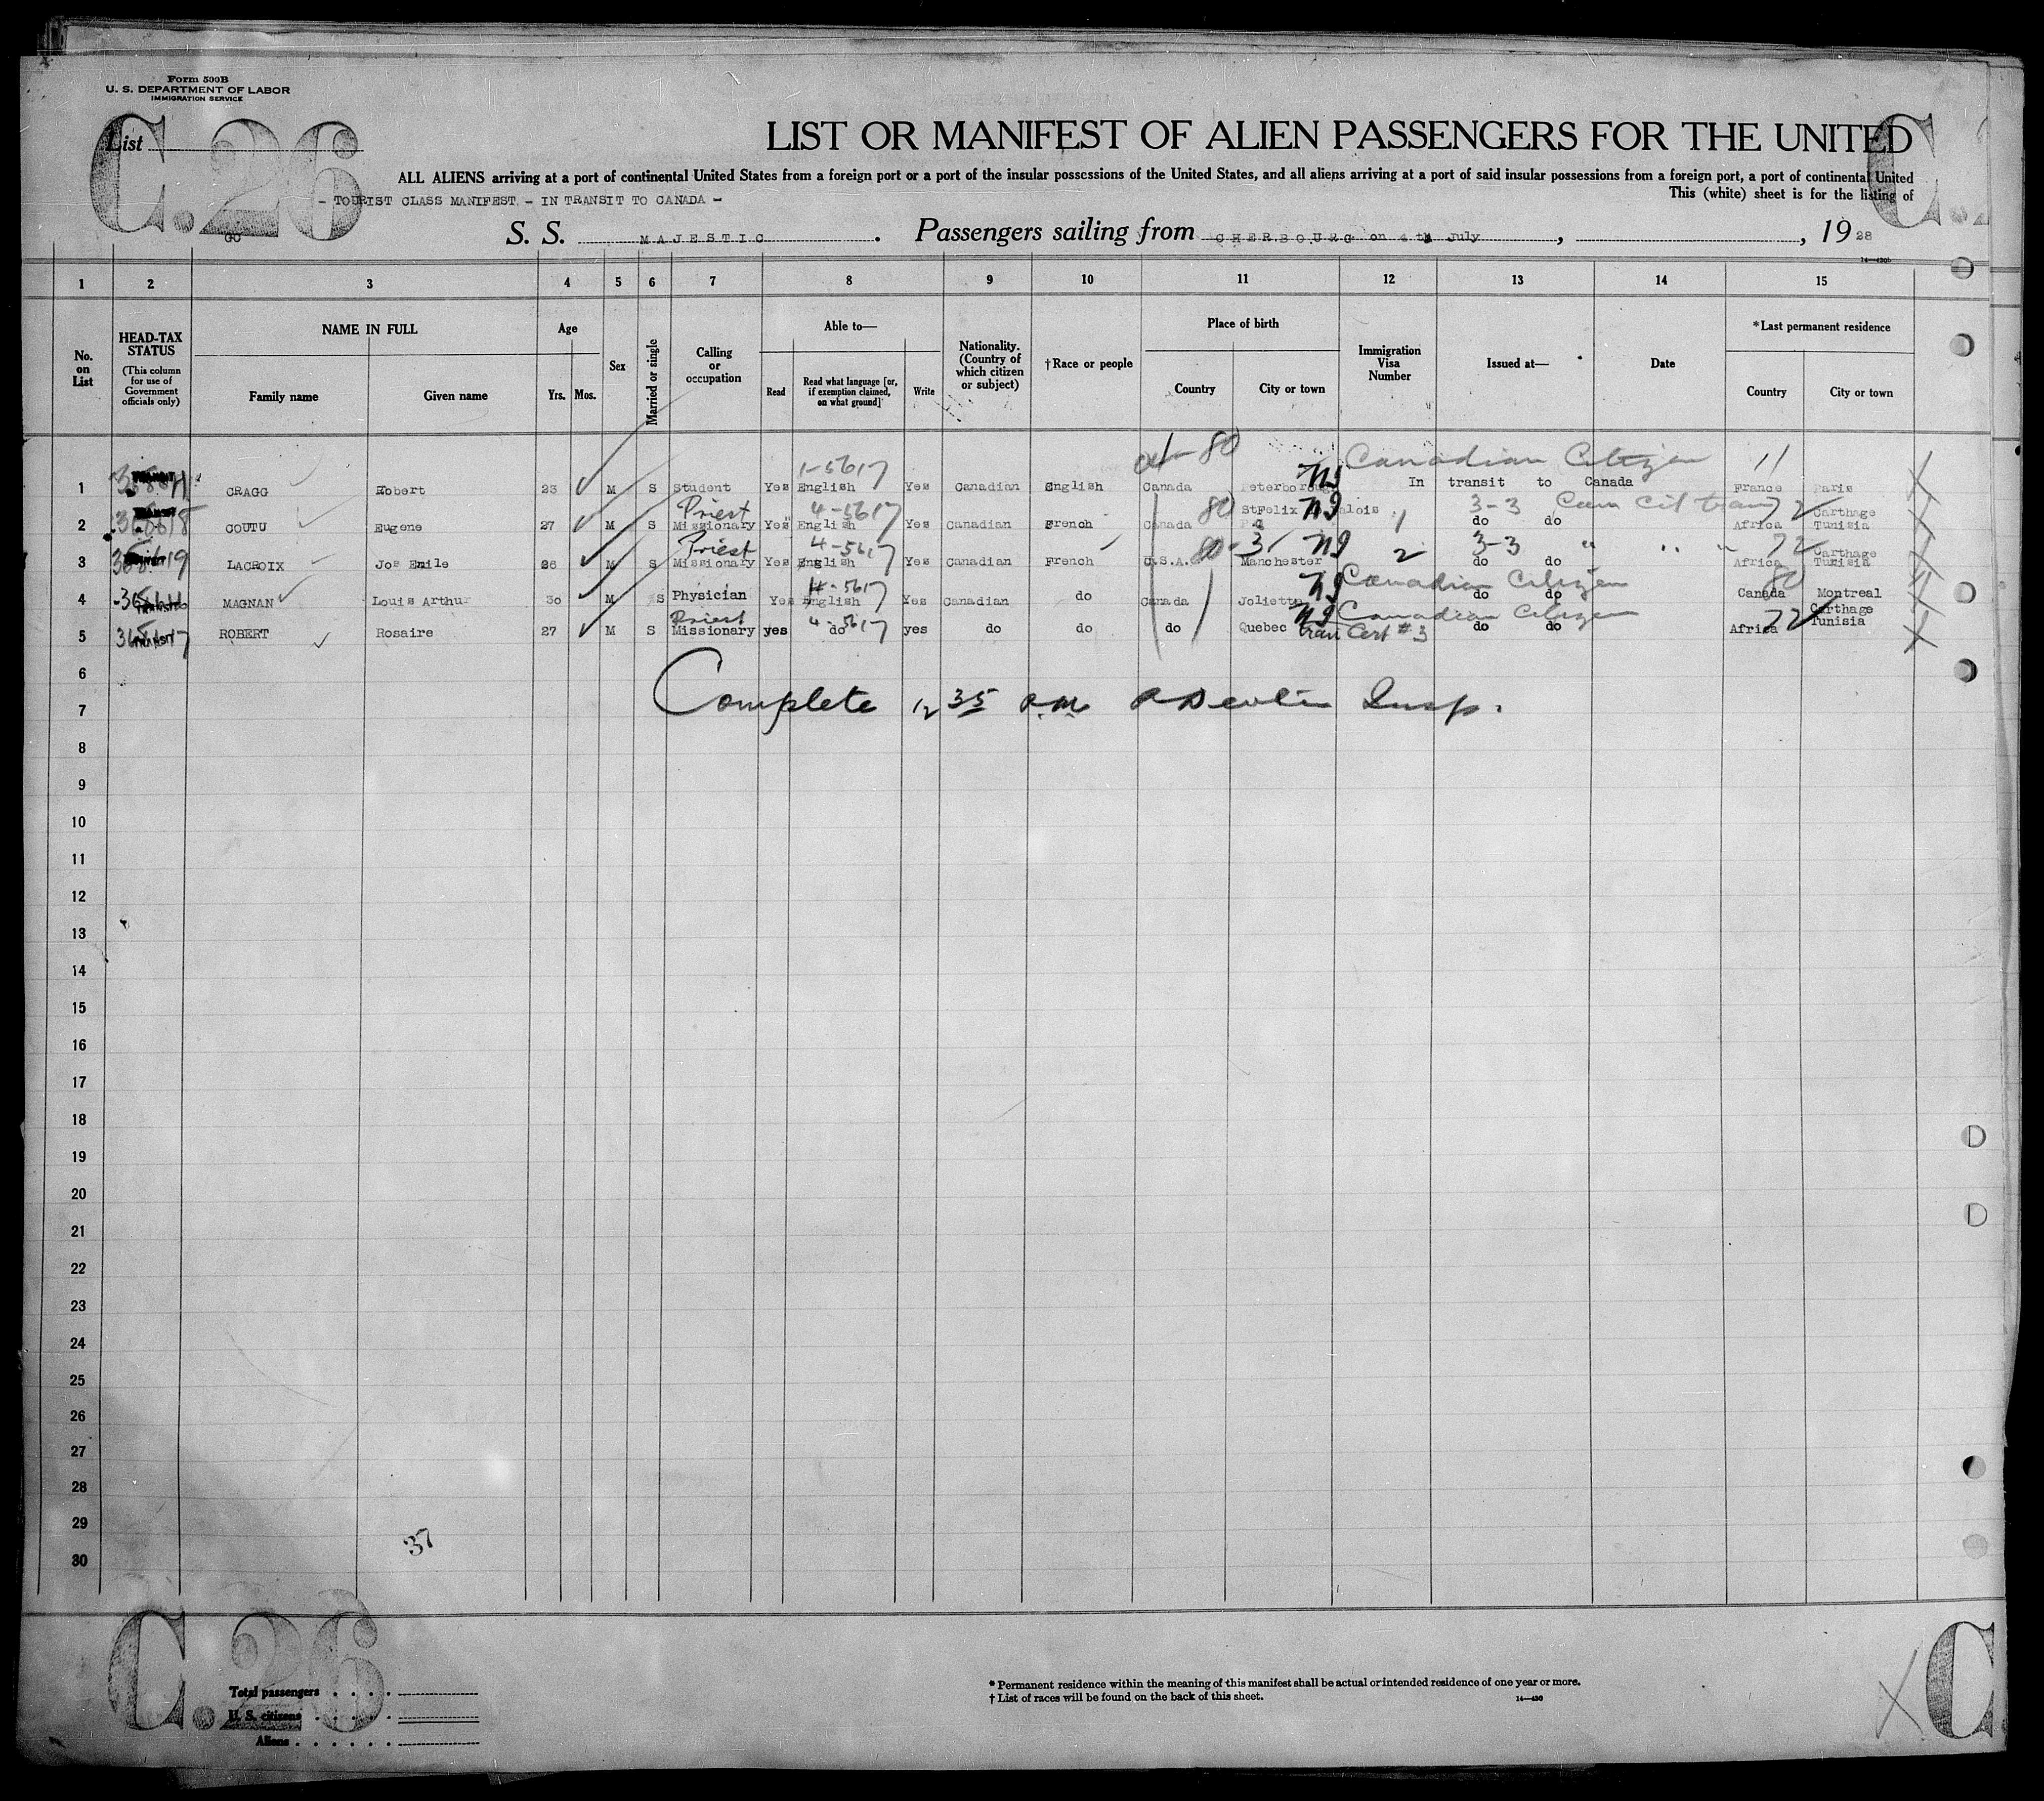 Form 500B
U. S. DEPARTMENT OF LABOR
IMMIGRATION SERVICE
C.26
List
LIST OR MANIFEST OF ALIEN PASSENGERS FOR THE UNITED
ALL ALIENS arriving at a port of continental United States from a foreign port or a port of the insular possessions of the United States, and all aliens arriving at a port of said insular possessions from a foreign port, a port of continental United
This (white) sheet is for the listing of
- TOURIST CLASS MANIFEST. - IN TRANSIT TO CANADA -
GO
S. S. MAJESTIC. Passengers sailing from CHERBOURG on 4 th July, , 1928
14—430b
1 2 3 4 5 6 7 8 9 10 11 12 13 14 15
No. on List
HEAD-TAX STATUS (This column for use of Government officials only)
NAME IN FULL
Family name Given name
Age
Yrs. Mos.
Sex
Married or single
Calling or occupation
Able to—
Read
Read what language [or, if exemption claimed, on what ground]
Write
Nationality. (Country of which citizen or subject)
†Race or people
Place of birth
Country City or town
Immigration Visa Number
Issued at—
Date
*Last permanent residence
Country City or town
80 Canadian Citizen 11
1-5617
1 CRAGG Robert 23 M S Student Yes English Yes Canadian English Canada Peterborough In transit to Canada France Paris
Priest 4-5617 80 3-3 Can Cit tran 72
2 COUTU Eugene 27 M S Missionary Yes English Yes Canadian French Canada StFelix Valois 1 do do Africa Carthage Tunisia
Priest 4-5617 3-3 " " " 72
3 LACROIX Jos Emile 26 M S Missionary Yes English Yes Canadian French U.S.A. Manchester 2 do do Africa Carthage Tunisia
4-5617 Canadian Citizen 80
4 MAGNAN Louis Arthur 30 M S Physician Yes English Yes Canadian do Canada Joliette do do Canada Montreal
Priest 4-5617 Canadian Citizen 72
5 ROBERT Rosaire 27 M S Missionary yes do yes do do do Quebec tran Cert #3 do do Africa Carthage Tunisia
6
Complete 12 35 P.M. Insp.
7
8
9
10
11
12
13
14
15
16
17
18
19
20
21
22
23
24
25
26
27
28
29
37
30
C.26
Total passengers
U. S. citizens
Aliens
* Permanent residence within the meaning of this manifest shall be actual or intended residence of one year or more.
† List of races will be found on the back of this sheet.
14—430
C